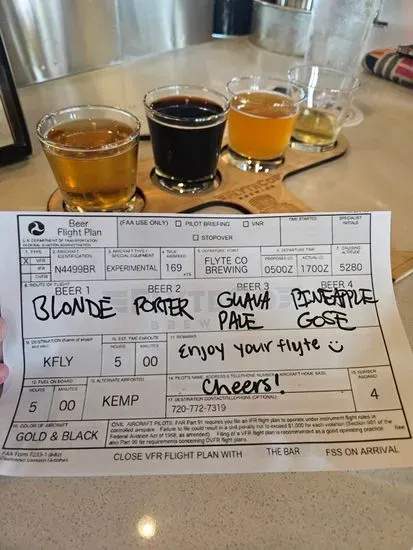 Beer
Flight Plan
U.S. DEPARTMENT OF TRANSPORTATION
FEDERAL AVIATION ADMINISTRATION
(FAA USE ONLY) PILOT BRIEFING VNR
STOPOVER
TIME STARTED
SPECIALIST
INITIALS
1. TYPE
X VFR
IFR
DVFR
2. AIRCRAFT
IDENTIFICATION
N4499BR
3. AIRCRAFT TYPE /
SPECIAL EQUIPMENT
EXPERIMENTAL
4. TRUE
AIRSPEED
169
KTS
5. DEPARTURE POINT
FLYTE CO
BREWING
6. DEPARTURE TIME
PROPOSED (Z) ACTUAL (Z)
0500Z 1700Z
7. CRUISING
ALTITUDE
5280
8. ROUTE OF FLIGHT
BEER 1 BEER 2 BEER 3 BEER 4
BLONDE PORTER GUAVA PINEAPPLE
PALE GOSE
9. DESTINATION (Name of airport
and city)
KFLY
10. EST. TIME ENROUTE
HOURS MINUTES
5 00
11. REMARKS
Enjoy your flyte
12. FUEL ON BOARD
HOURS MINUTES
5 00
13. ALTERNATE AIRPORT(S)
KEMP
14. PILOT'S NAME, ADDRESS & TELEPHONE NUMBER & AIRCRAFT HOME BASE
Cheers!
17. DESTINATION CONTACT/TELEPHONE (OPTIONAL)
720-772-7319
15. NUMBER
ABOARD
4
16. COLOR OF AIRCRAFT
GOLD & BLACK
CIVIL AIRCRAFT PILOTS: FAR Part 91 requires you file an IFR flight plan to operate under instrument flight rules in
controlled airspace. Failure to file could result in a civil penalty not to exceed $1,000 for each violation (Section 901 of the
Federal Aviation Act of 1958, as amended). Filing of a VFR flight plan is recommended as a good operating practice. See
also Part 99 for requirements concerning DVFR flight plans.
FAA Form 7233-1 (8-82)
CLOSE VFR FLIGHT PLAN WITH THE BAR FSS ON ARRIVAL